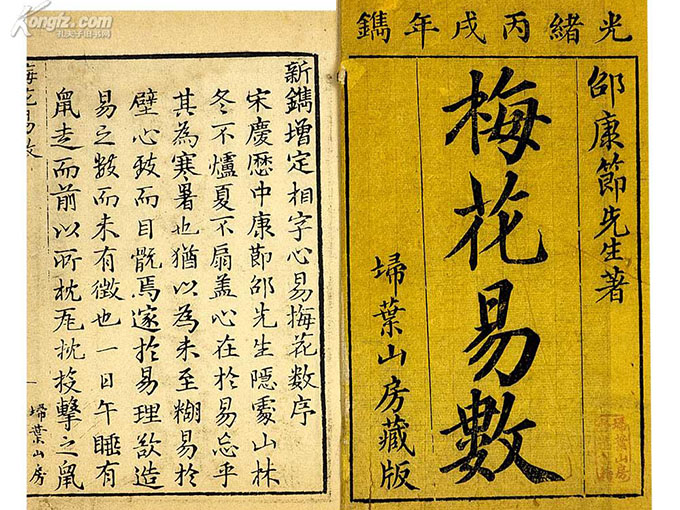 光緒丙戌年鐫
邵康節先生著
梅花易數
埽葉山房藏版
新鐫增定相字心易梅花數序
宋慶歷中康節邵先生隱處山林
冬不爐夏不扇盖心在於易忘乎
其為寒暑也猶以為未至糊易於
壁心致而目翫焉邃於易理欲造
易之數而未有徵也一日午睡有
鼠走而前以所枕瓦枕投擊之鼠
梅花易數
一
埽葉山房
Kongfz.com
孔夫子旧书网